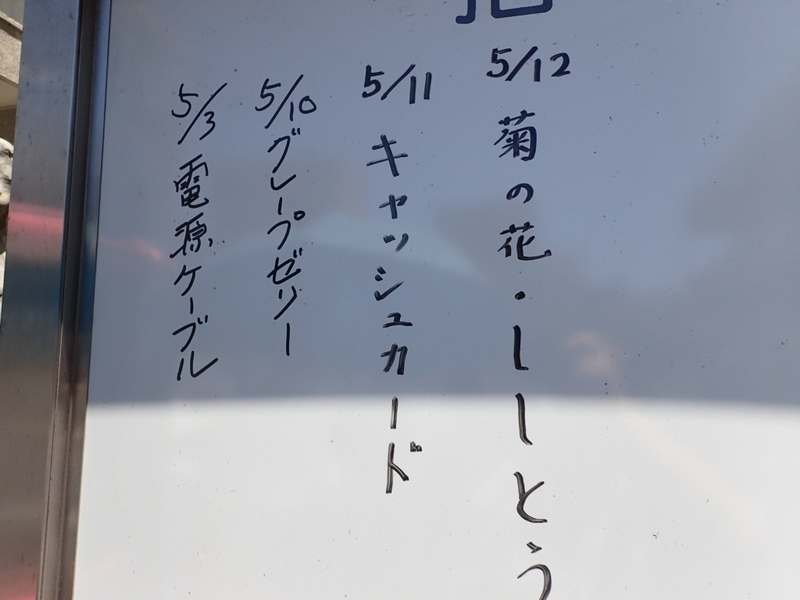 5/12 菊の花・ししとう
5/11 キャッシュカード
5/10 グレープゼリー
5/3 電源ケーブル